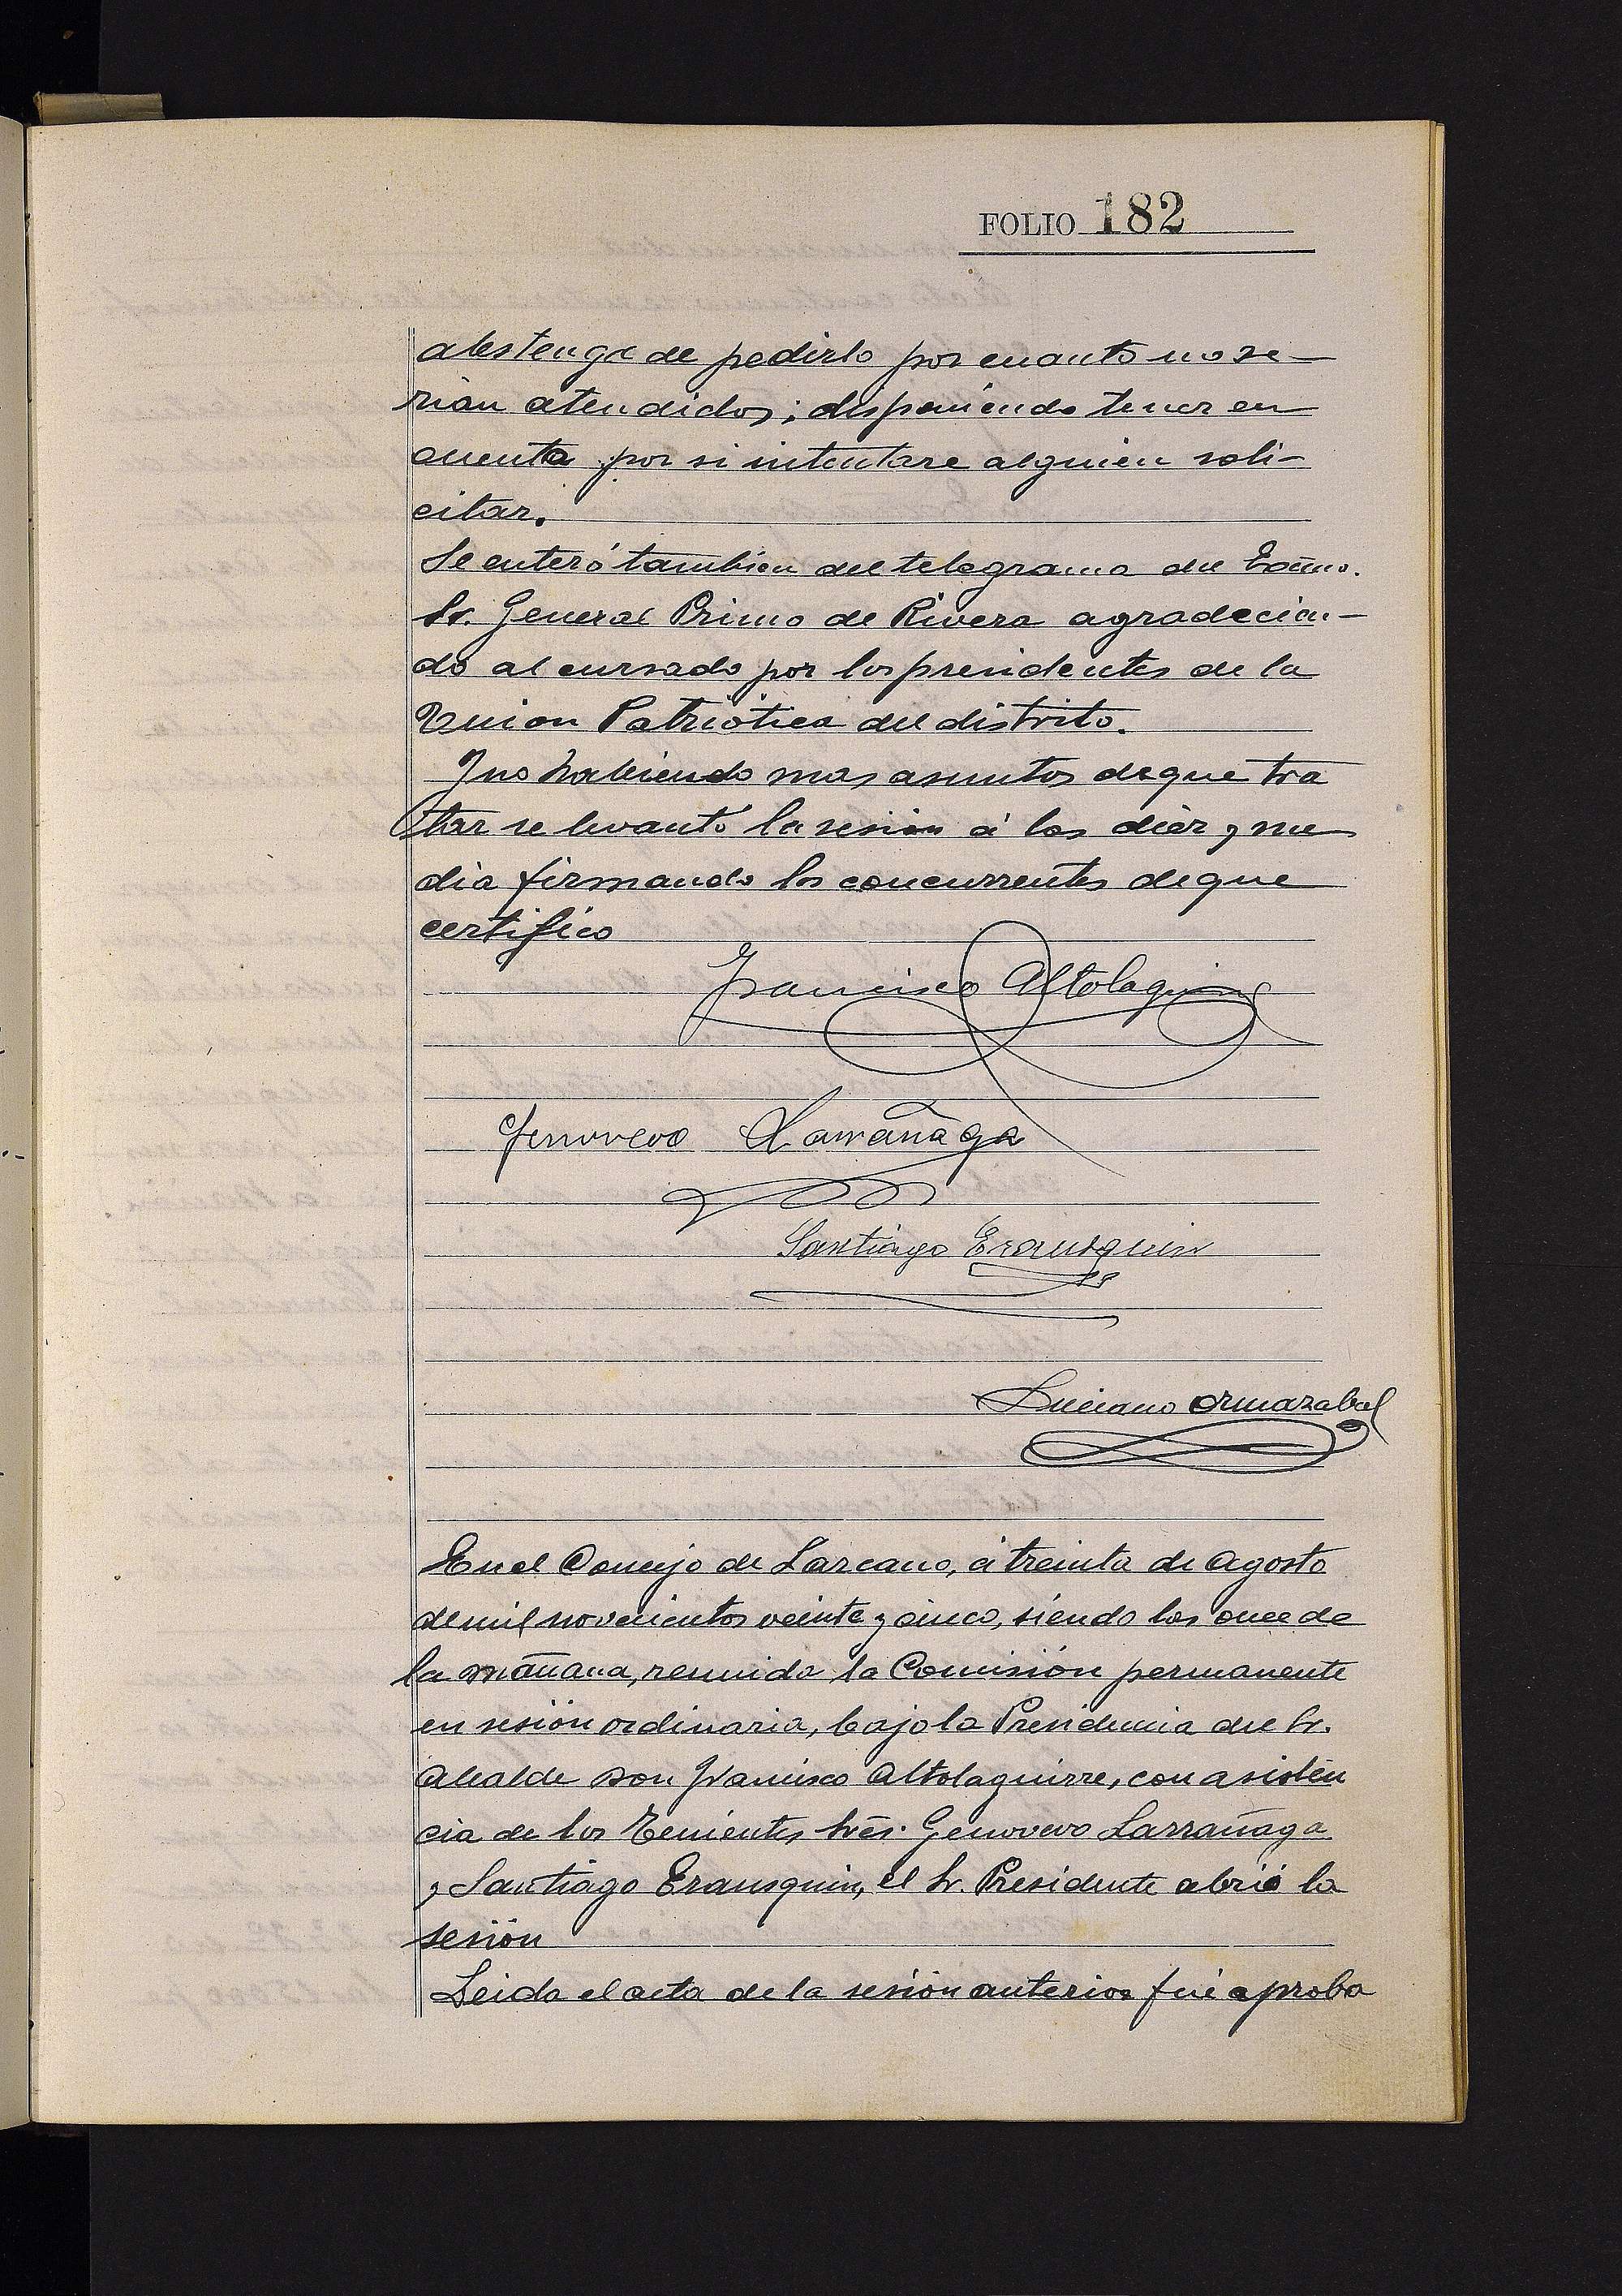 FOLIO 182
abstenga de pedirlo por cuanto no se-
rian atendidos; disponiendo tener en
cuenta por si intentare alguien soli-
citar.
Se enteró tambien del telegrama del Excmo.
Sr. General Primo de Rivera agradecien-
do al cursado por los presidentes de la
Union Patriótica del distrito.
Y no habiendo mas asuntos de que tra
tar se levantó la sesión á las diez y me
dia firmando los concurrentes de que
certifico
Francisco Altolaguirre
Genovevo Larrañaga
Santiago Erausquin
Luciano Ormazabal
En el Concejo de Lazcano, á treinta de Agosto
de mil novecientos veinte y cinco, siendo las once de
la mañana, reunida la Comisión permanente
en sesión ordinaria, bajo la Presidencia del Sr.
Alcalde Don Francisco Altolaguirre, con asisten
cia de los Tenientes Sres. Genovevo Larrañaga
y Santiago Erausquin, el Sr. Presidente abrió la
sesión
Leida el acta de la sesión anterior fué aproba